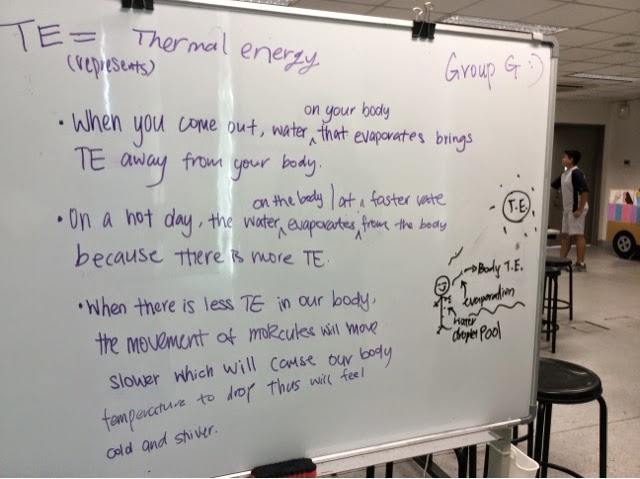 TE = Thermal energy
(represents)
Group G :)
on your body
• When you come out, water ^ that evaporates brings
TE away from your body.
on the body | at a faster rate
• On a hot day, the water ^ evaporates ^ from the body
because there is more TE.
• When there is less TE in our body,
the movement of molecules will move
slower which will cause our body
temperature to drop thus will feel
cold and shiver.
T.E
Body T.E.
evaporation
water
droplet
Pool